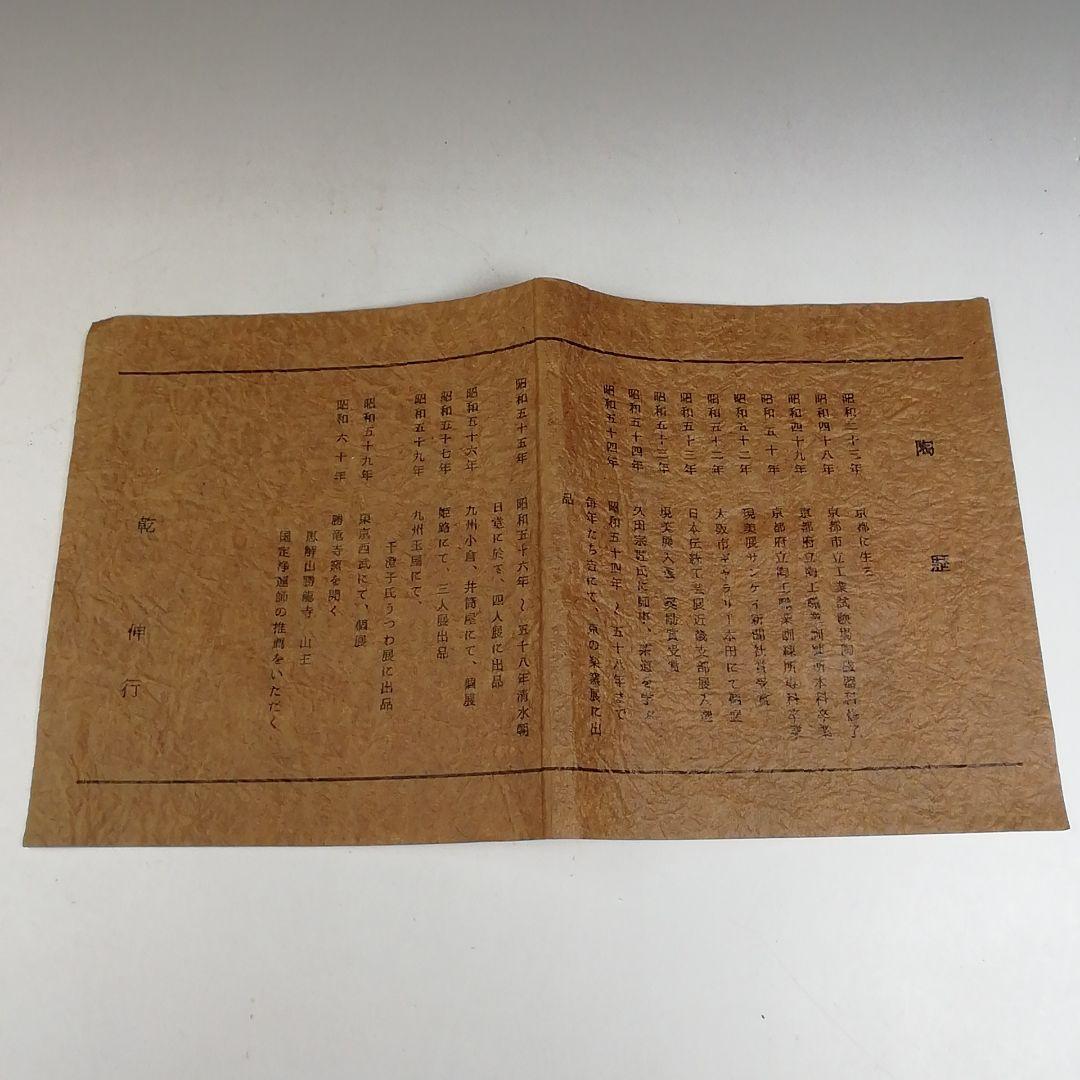 陶歴
昭和二十三年 京都に生る
昭和四十八年 京都市立工業試験場陶磁器科修了
昭和四十九年 京都府立陶工職業訓練所本科卒業
昭和五十年 京都府立陶工職業訓練所専科卒業
昭和五十二年 現美展サンケイ新聞社賞受賞
昭和五十二年 大阪市ギャラリー本田にて個展
昭和五十三年 日本伝統工芸展近畿支部展入選
昭和五十三年 現美展入選 奨励賞受賞
昭和五十四年 久田宗匠氏に師事、茶道を学ぶ
昭和五十四年 昭和五十四年〜五十八年まで
毎年たち吉にて、京の茶業展に出
品
昭和五十五年 昭和五十六年〜五十八年清水朝
日堂に於て、四人展に出品
昭和五十六年 九州小倉、井筒屋にて、個展
昭和五十七年 姫路にて、三人展出品
昭和五十九年 九州玉屋にて、
千澄子氏うつわ展に出品
昭和五十九年 東京西武にて、個展
昭和六十年 勝竜寺窯を開く
恵解山勝龍寺 山主
国定浄運師の推薦をいただく
乾 伸行